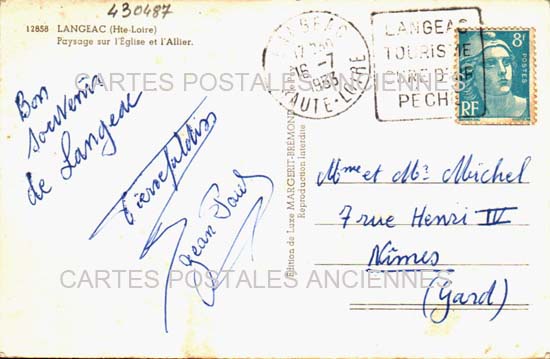 430487
12858 LANGEAC (Hte-Loire)
Paysage sur l'Église et l'Allier.
Bon
souvenir
de Langeac
Jean Paul
Édition de Luxe MARGERIT-BRÉMOND
Reproduction Interdite
LANGEAC
16 -7
HAUTE-LOIRE
LANGEAC
TOURISME
PECHE
8F
POSTES
RF
Mme et Mr Michel
7 rue Henri IV
Nîmes
(Gard)
CARTES POSTALES ANCIENNES
CARTES POSTALES ANCIENNES